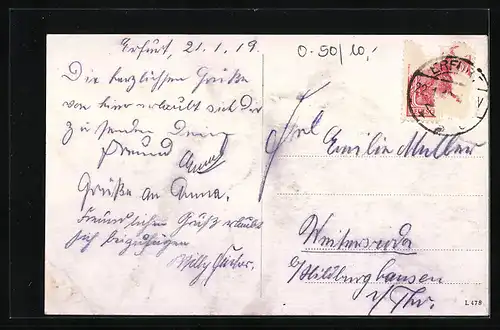 Erfurt, 21.1.19.
Die herzlichsten Grüße
von hier erlaubt sich dir
zu senden Dein
Freund
Grüße an Anna.
Freundlichen Gruß erlaubt
sich beizufügen
Willy
0-50/10,-
ERFURT
Frl. Emilie Müller
Weitersroda
b/Hildburghausen
i/Thr.
L 478